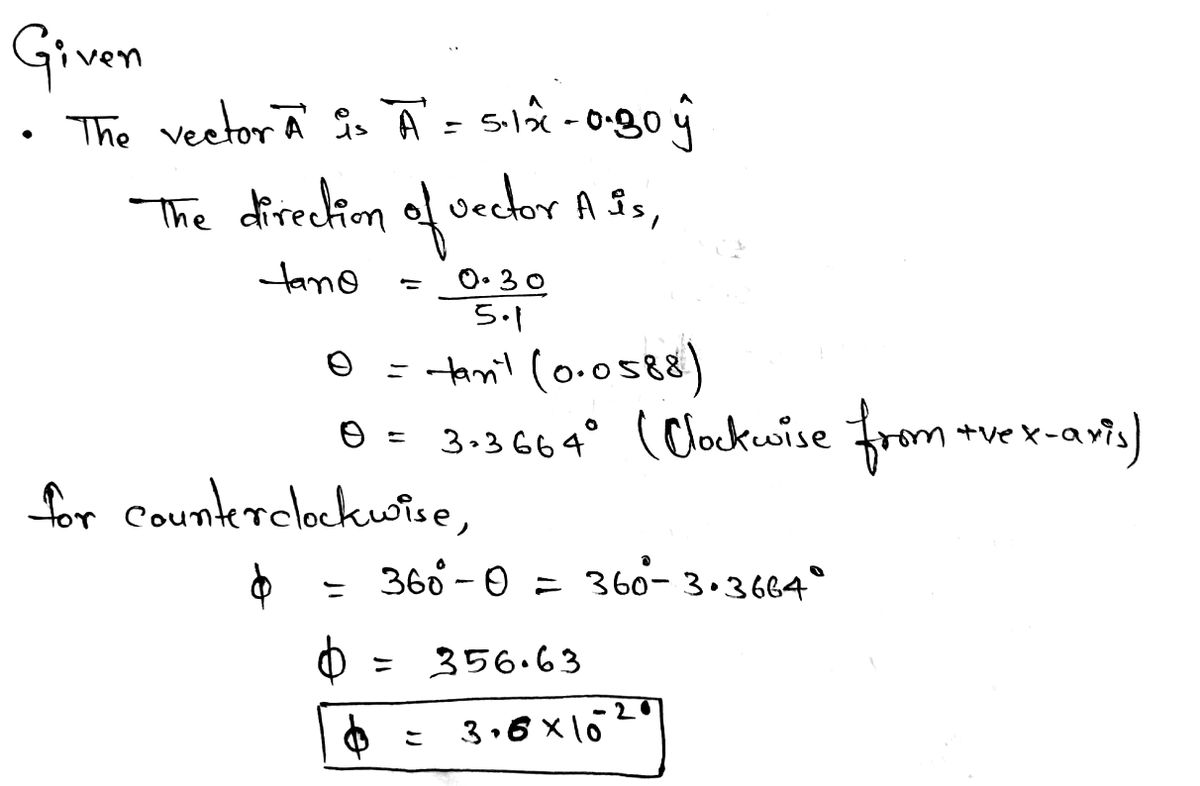 Given
• The vector A⃗ is A⃗ = 5.1x̂ - 0.30 ŷ
The direction of vector A is,
tanθ = 0.30 / 5.1
θ = tan⁻¹ (0.0588)
θ = 3.3664° (Clockwise from +ve x-axis)
for counterclockwise,
ϕ = 360° - θ = 360° - 3.3664°
ϕ = 356.63
ϕ = 3.6 × 10⁻²°